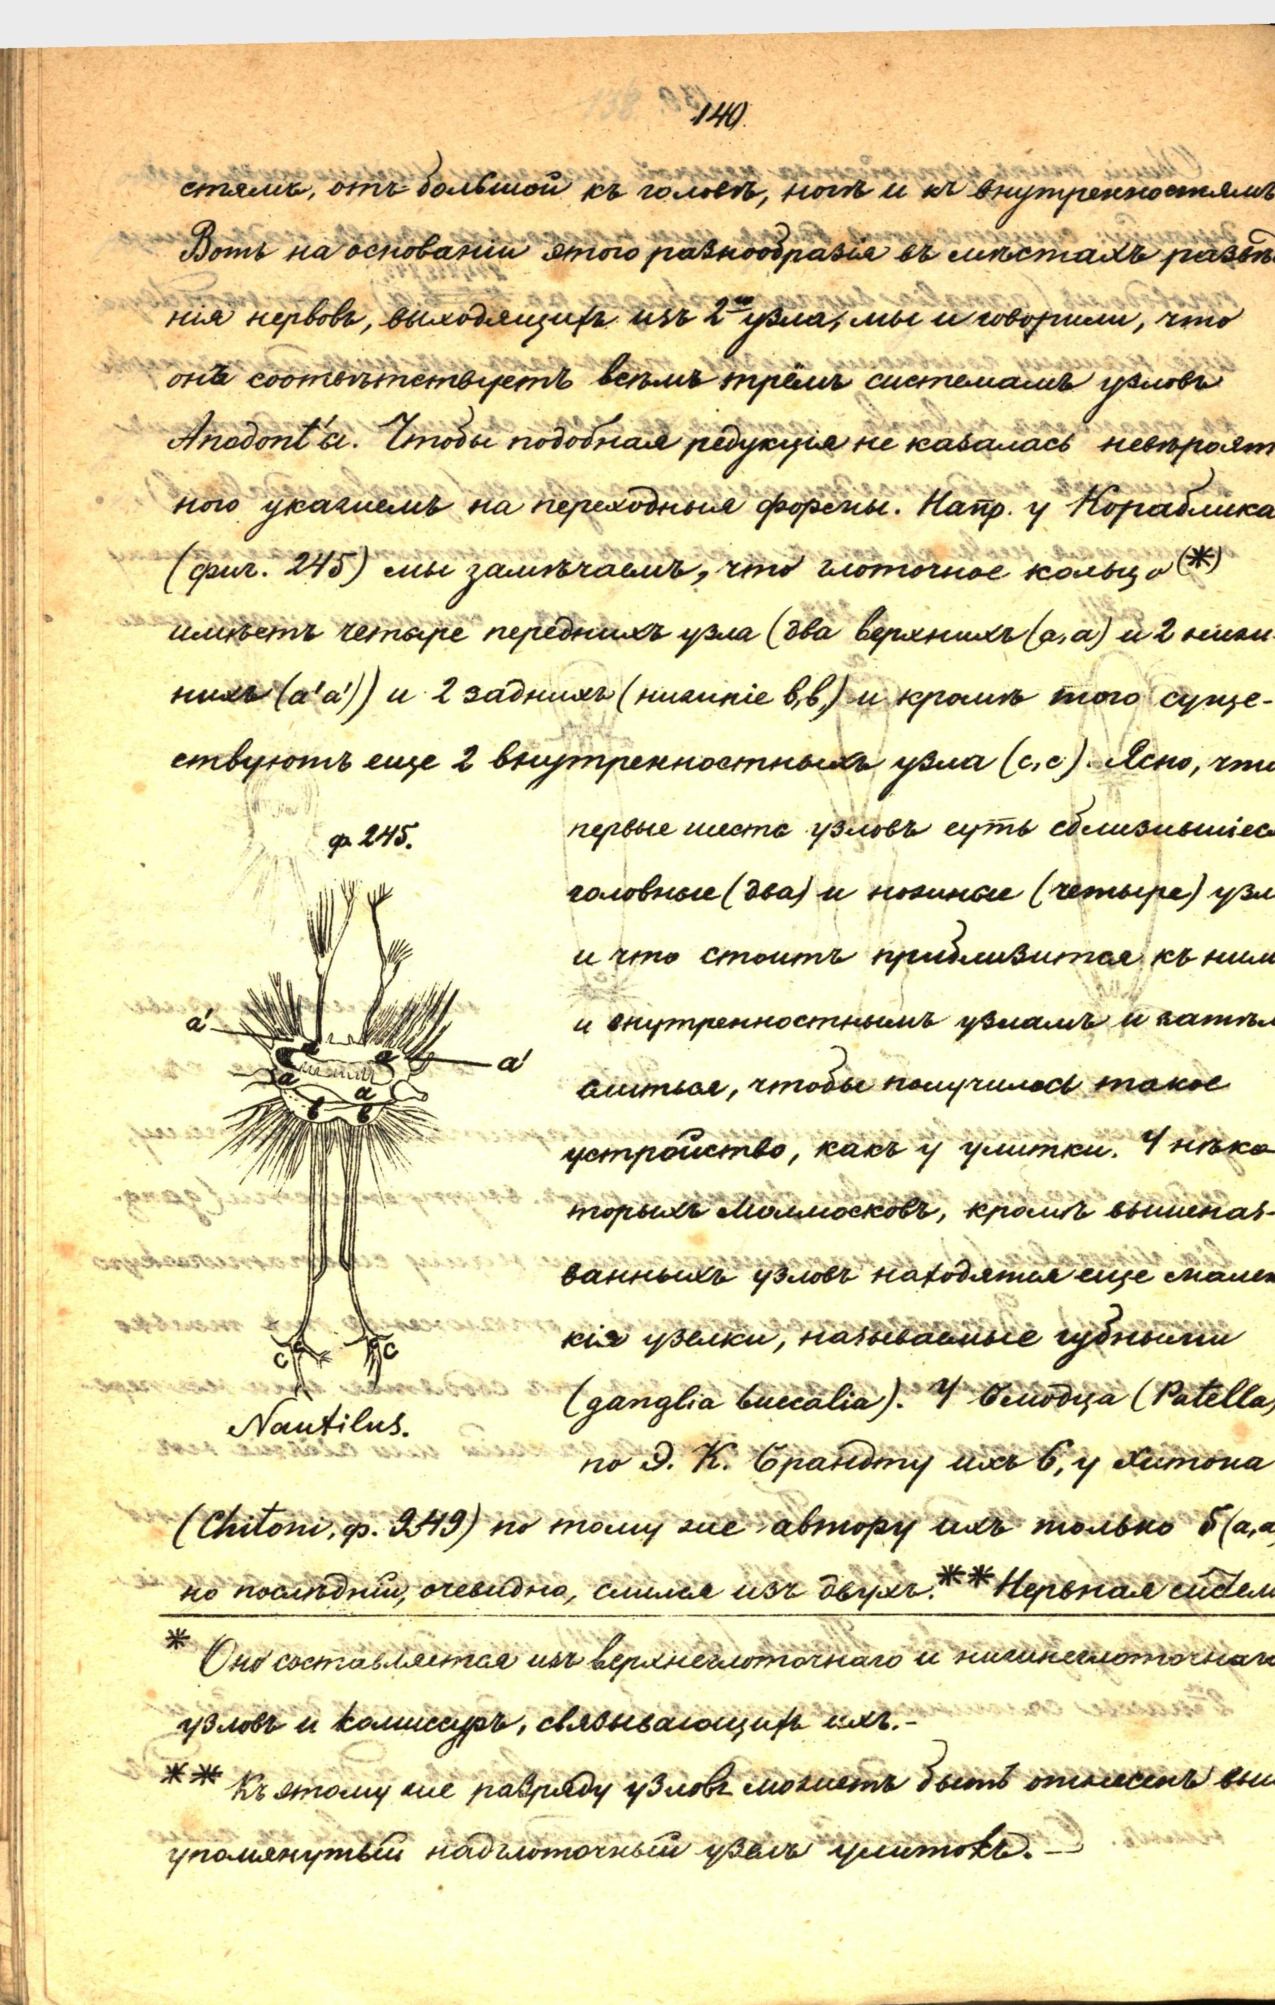 140.
стямъ, отъ большой къ головѣ, ногѣ и къ внутренностямъ
Вотъ на основаніи этого разнообразія въ мѣстахъ развѣт
нія нервовъ, выходящихъ изъ 2го узла, мы и говорили, что
онъ соотвѣтствуетъ всѣмъ трёмъ системамъ узловъ
Anodont'ы. Чтобы подобная редукція не казалась невѣроят
ного укажемъ на переходныя формы. Напр. у Кораблика
(фиг. 245) мы замѣчаемъ, что глоточное кольцо (*)
имѣетъ четыре переднихъ узла (два верхнихъ (a, a) и 2 ниж-
нихъ (a'a')) и 2 заднихъ (нижніе b, b,) и кромѣ того суще-
ствуютъ еще 2 внутренностныхъ узла (c, c). Ясно, что
первые шесть узловъ суть сблизившіеся
головные (два) и ножные (четыре) узл
и что стоитъ приблизится къ ним
и внутренностнымъ узламъ и затѣм
слиться, чтобы получилось такое
устройство, какъ у улитки. У нѣко
торыхъ Моллюсковъ, кромѣ вышеназ-
ванныхъ узловъ находятся еще мален
кія узелки, называемые губными
(ganglia buccalia). У Блюдца (Patella)
по Э. К. Брандту ихъ 6, у Хитона
(Chitoni, ф. 249) по тому же автору ихъ только 5 (a, a,
но послѣдній, очевидно, слился изъ двухъ.** Нервная систем
ф. 245.
a'
a'
a
a
a
a
b
b
c
c
Nautilus.
* Оно составляется изъ верхнеглоточнаго и нижнеглоточнаго
узловъ и комиссуръ, связывающихъ ихъ.-
** Къ этому же разряду узловъ можетъ быть отнесенъ выш
упомянутый надглоточный узелъ улитокъ. —